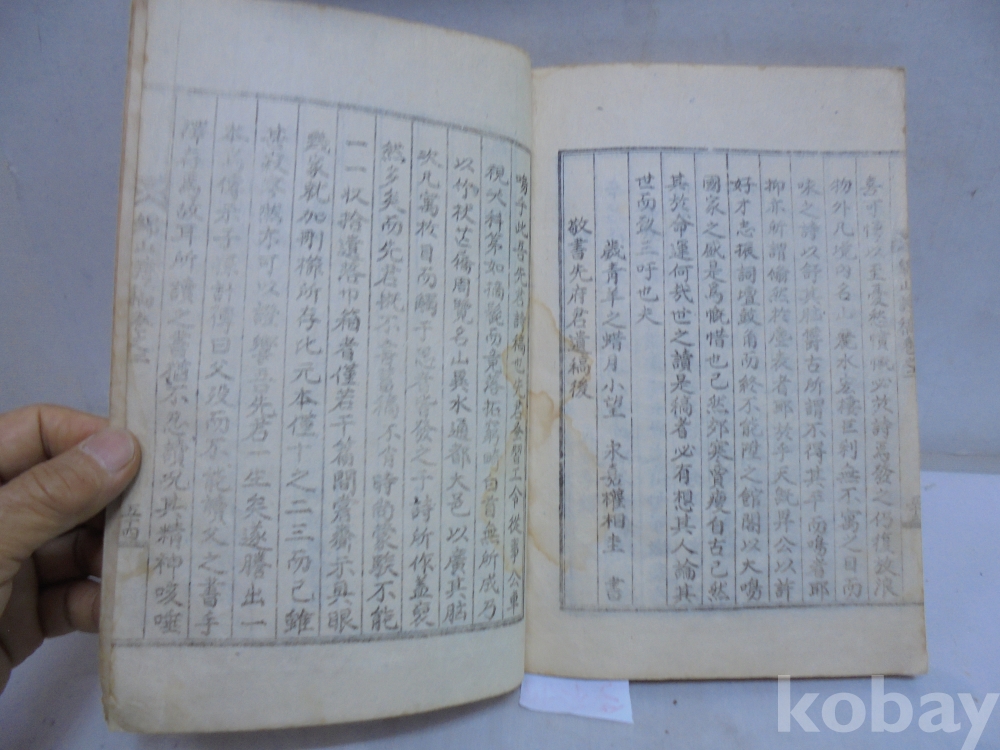 喜可愕以至憂愁憤慨必於詩焉發之仍復放浪
物外凡境內名山麗水妄樓巨刹無不寓之目而
味之詩以舒其腦儕古所謂不得其平而鳴者耶
抑亦所謂翛然於塵表者耶於乎天旣畀公以許
好才志振詞壇鼓角而終不能陞之館閣以大鳴
國家之盛是爲慨惜也已然郊寒賈瘦自古已然
其於命運何哉世之讀是稿者必有想其人論其
世而致三吁也夫
歲靑羊之蜡月小望 權相圭 書
敬書先府君遺稿後
嗚乎此吾先君詩稿也先君 上令從事公車
視決科第如 而竟落拓窮 白首無所成乃
以竹杖芒僑周覽名山異水通都大邑以廣其腦
次凡寓於目而觸于思者皆發之于詩所作盖裒
然多矣而先君旣不 稿不肖時尙蒙騃不能
一一收拾遺落巾箱者僅若干篇間嘗齎示具眼
幾家就加刪 所存比元本僅十之二三而已雖
其 亦可以證 吾先君一生矣遂謄出一
本 傳示子孫計傳曰父沒而不能讀父之書手
澤存焉故耳所讀之書猶不忍讀況其精神咳唾
五四
kobay